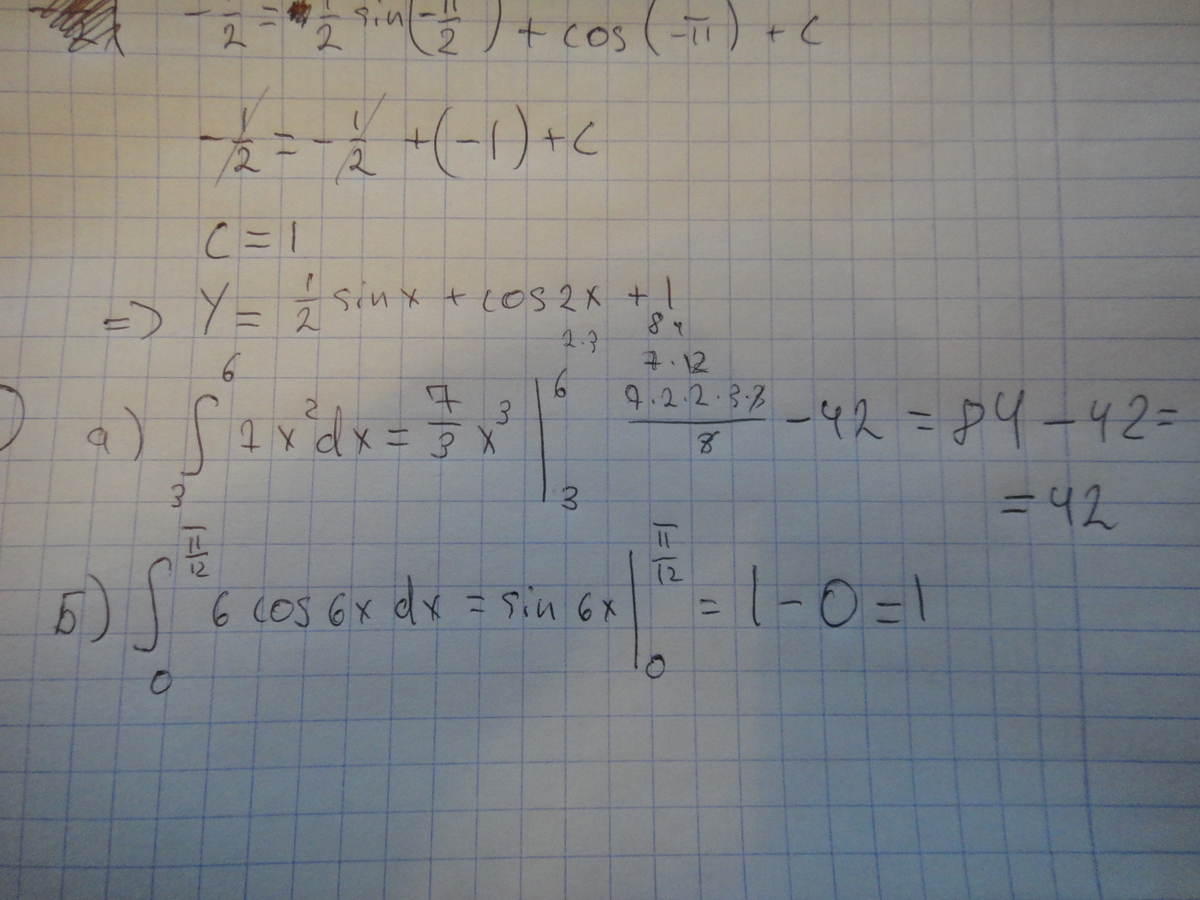 -1/2 = 1/2 sin(-π/2) + cos(-π) + C
-1/2 = -1/2 + (-1) + C
C = 1
=> Y = 1/2 sin x + cos 2x + 1
а) ∫₃⁶ 7x²dx = 7/3 x³ |₃⁶ 7·2·2·3·3/3 - 42 = 84 - 42 =
2·3 7·12 84
= 42
Б) ∫₀^(π/12) 6 cos 6x dx = sin 6x |₀^(π/12) = 1 - 0 = 1